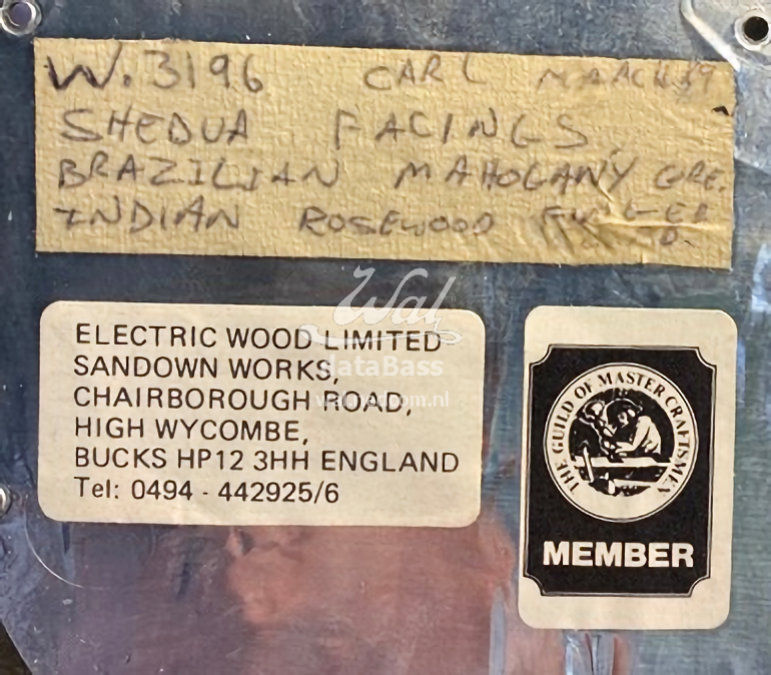 W.3196 CARL MARCH 89
SHEDUA FACINGS.
BRAZILIAN MAHOGANY CORE.
INDIAN ROSEWOOD FINGER
Wal
dataBass
ELECTRIC WOOD LIMITED
SANDOWN WORKS,
CHAIRBOROUGH ROAD,
HIGH WYCOMBE,
BUCKS HP12 3HH ENGLAND
Tel: 0494 - 442925/6
THE GUILD OF MASTER CRAFTSMEN
MEMBER